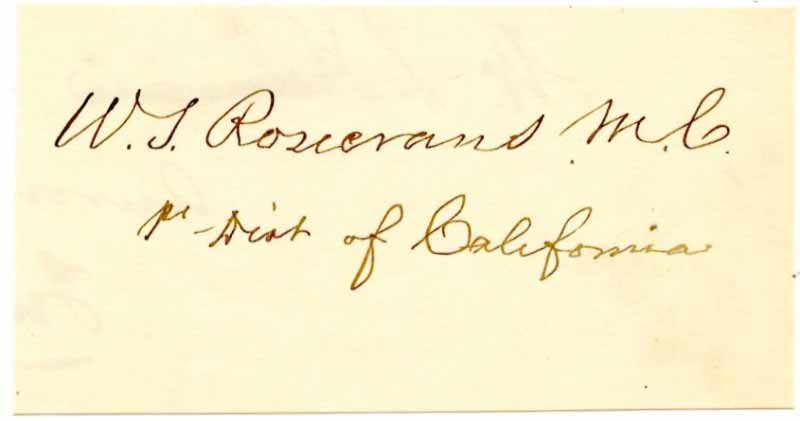 W. S. Rosecrans M.C.
1st Dist of California